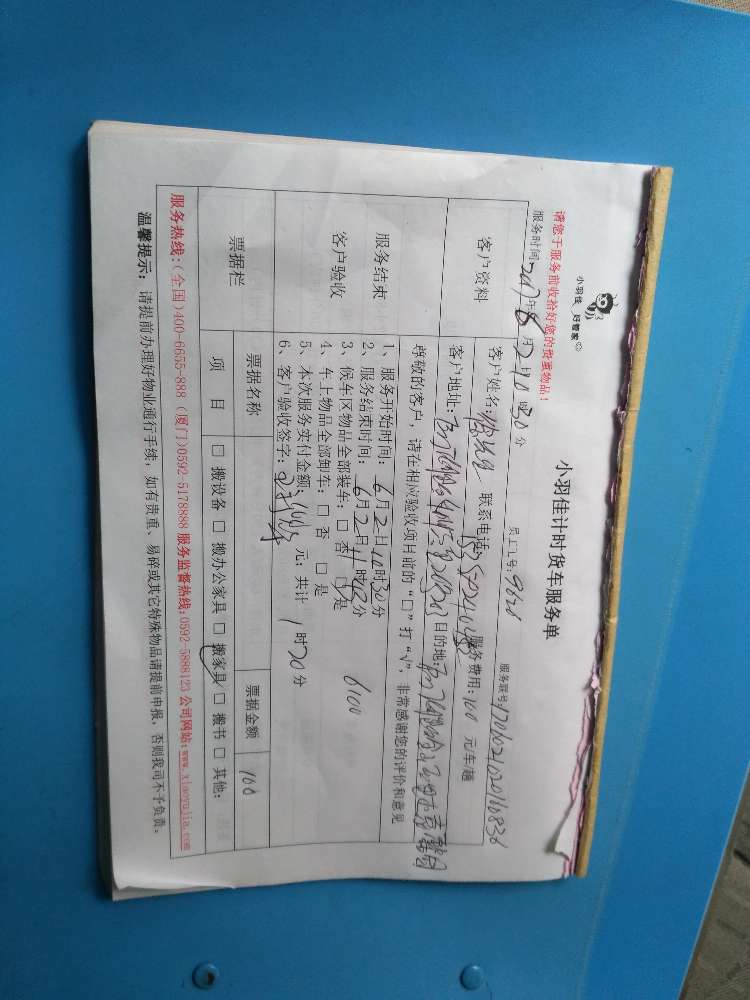 小羽佳 好管家
小羽佳计时货车服务单
请您于服务前收拾好您的贵重物品:
员工工号: 9620
服务联号: 
服务时间: 2017年6月2日10时30分
客户资料
客户姓名: 联系电话: 服务费用: 100 元/车/趟
客户地址: 目的地:
服务结束
客户验收
尊敬的客户,请在相应验收项目前的“□”打“√”,非常感谢您的评价和意见
1、服务开始时间: 6月2日10时30分
2、服务结束时间: 6月2日11时50分
3、候车区物品全部装车: □ 否 □ 是
4、车上物品全部卸车: □ 否 □ 是
5、本次服务实付金额: 100 元; 共计 1 时20分
6、客户验收签字:
票据栏
票据名称
票据金额
100
项 目
□ 搬设备 □ 搬办公家具 □ 搬家具 □ 搬书 □ 其他:
服务热线:(全国)400-6655-888 (厦门)0592-5178888 服务监督热线:0592-5888123 公司网站:www.xiaoyujia.com
温馨提示: 请提前办理好物业通行手续,如有贵重、易碎或其它特殊物品请提前申报,否则我司不予负责。